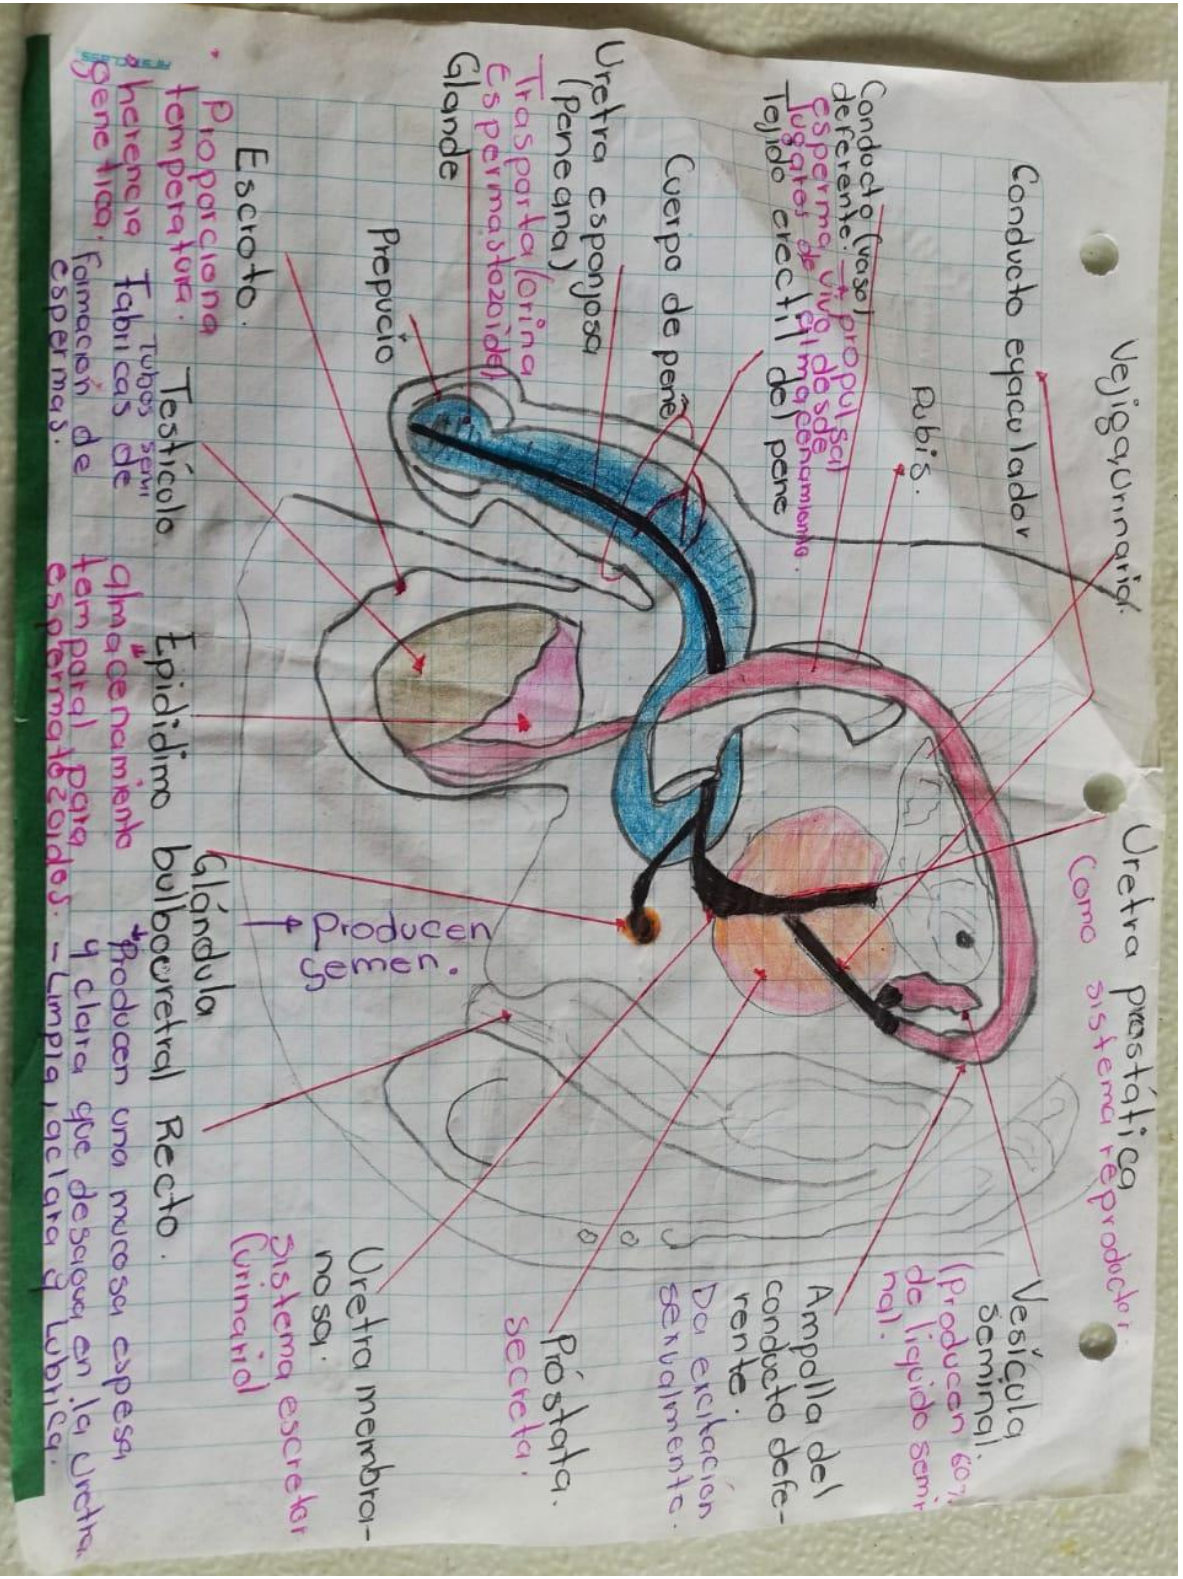 Vejiga Urinaria.
Conducto eyaculador
Pubis.
Conducto (vaso)
deferente: → propulsa
esperma vivo desde
lugares de almacenamiento.
Tejido erectil del pene
Cuerpo de pene
Uretra esponjosa
(peneana)
Trasporta (orina
Espermastozoide)
Glande
Prepucio
Escroto.
• Proporciona
temperatura.
Testículo
Tubos semi
• herencia fabricas de
genetica. formación de
espermas.
Epididimo
almacenamiento
temporal para
espermatozoides.
Glándula
bulbouretral
→ Producen
semen.
Producen una mucosa espesa
y clara que desagua en la uretra.
- Limpia, aclara y lubrica.
Recto.
Uretra membra-
nosa.
Sistema escretor
(urinario)
Próstata.
Secreta.
Ampolla del
conducto defe-
rente.
Da exitación
sexualmente.
Vesícula
seminal:
(Producen 60%
de liquido semi-
nal).
Uretra prostática
Como sistema reproductor.